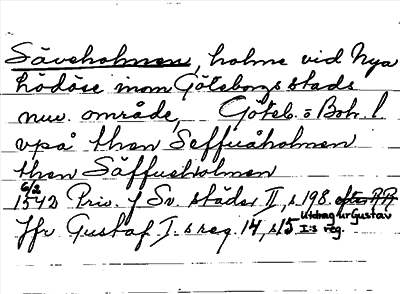 Säveholmen, holme vid Nya
Lödöse inom Göteborgs stads
nuv. område, Göteb. o Boh. l
vpå then Seffuåholmen
then Säffueholmen
6/2
1542 Priv. f Sv. städer II, s 198. efter RR
Jfr Gustaf I:s reg. 14, s 15 Utdrag ur Gustav
I:s reg.